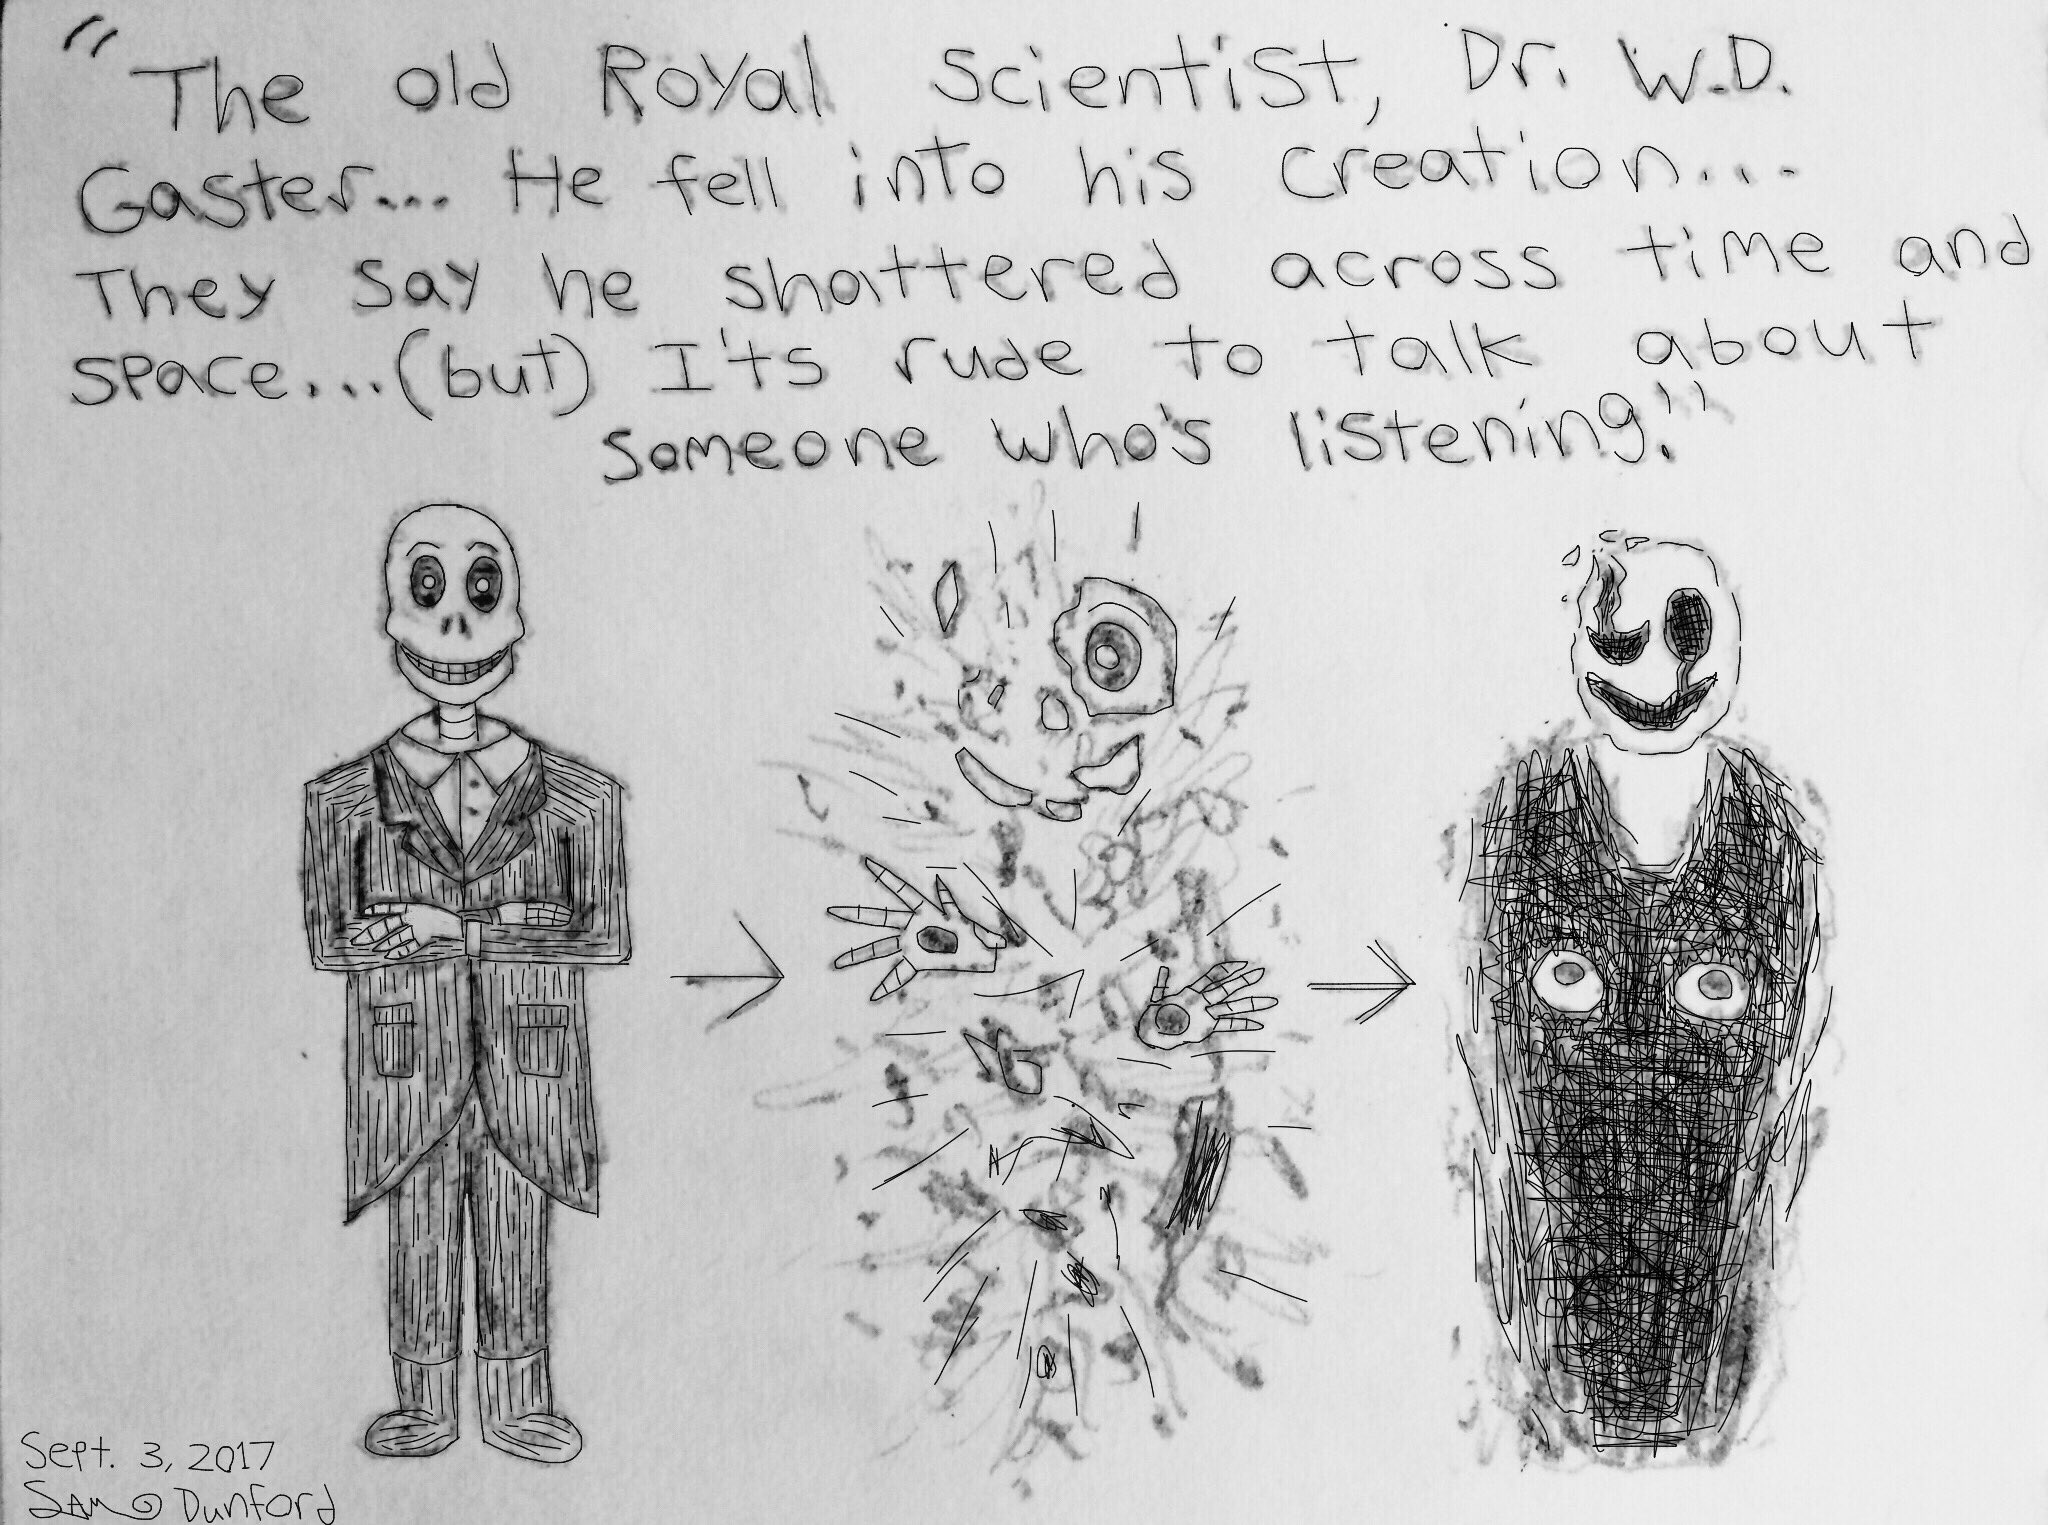 "The old Royal Scientist, Dr. W.D.
Gaster... He fell into his creation...
They say he shattered across time and
space...(but) I'ts rude to talk about
someone who's listening."
Sept. 3, 2017
Sam Dunford